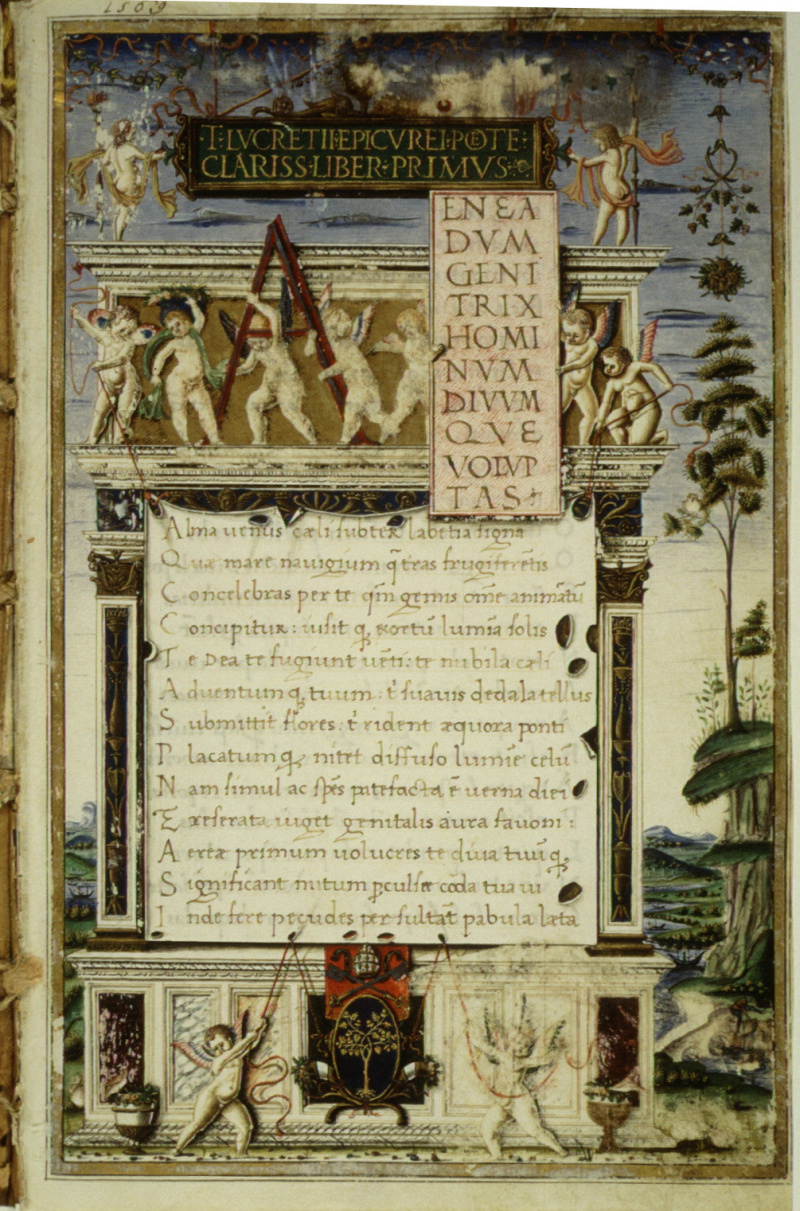 1569
T·LVCRETII·EPICVREI·POETE·
CLARISS·LIBER·PRIMVS·
A
ENEA
DVM
GENI
TRIX
HOMI
NVM
DIVVM
QVE
VOLVP
TAS
Alma uenus cæli subter labētia signa
Quæ mare nauigium q̄ tras frugiferētis
Concelebras per te qm̄ genus om̄e animātū
Concipitur: uisit q; exortū lumīa solis
Te Dea te fugiunt uēti: te nubila cæli
Aduentum q; tuum: t' suauis dedala tellus
Submittit flores: t' rident æquora ponti
Placatum q; nitet diffuso lumīe celū
Nam simul ac spēs patefacta ē uerna diei
Exreserata uiget genitalis aura fauoni:
Aereæ primum uolucres te diua tuū q;
Significant initum ꝑculsæ corda tua ui
Inde fere pecudes per sultāt pabula læta